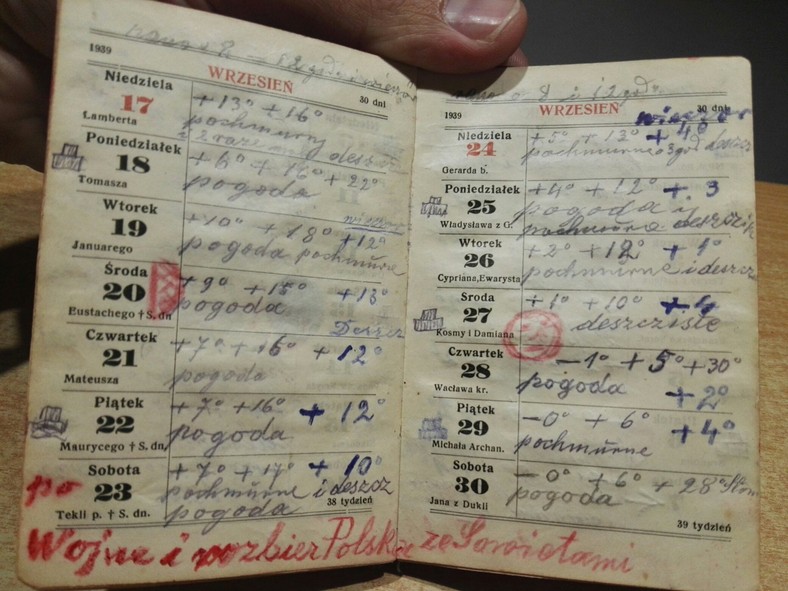 rano o 8
1939
WRZESIEŃ
30 dni
Niedziela
17
Lamberta
+13° +16°
pochmurny deszcz
2 razy
Poniedziałek
18
Tomasza
+6° +16° +22°
pogoda
Wtorek
19
Januarego
+10° +18° +12°
pogoda pochmurne
Środa
20
Eustachego † S. dn.
+9° +15° +13°
pogoda
Deszcz
Czwartek
21
Mateusza
+7° +16° +12°
pogoda
Piątek
22
Maurycego † S. dn.
+7° +16° +12°
pogoda
po
Sobota
23
Tekli p. † S. dn.
+7° +17° +10°
pochmurne i deszcz
pogoda
38 tydzień
rano o 8 i 12
1939
WRZESIEŃ
30 dni
wieczor
Niedziela
24
Gerarda b.
+5° +13° +4°
pochmurne deszcz
Poniedziałek
25
Władysława z G.
+4° +12° +3
pogoda i
pochmurne deszczyk
Wtorek
26
Cypriana, Ewarysta
+2° +12°
pochmurne i deszcz
Środa
27
Kosmy i Damiana
+1° +10° +4
deszczyste
Czwartek
28
Wacława kr.
-1° +5° +30°
pogoda +2°
Piątek
29
Michała Archan.
-0° +6° +4°
pochmurne
Sobota
30
Jana z Dukli
-0° +6° +28°
pogoda
39 tydzień
Wojne i rozbier Polski ze Sowietami